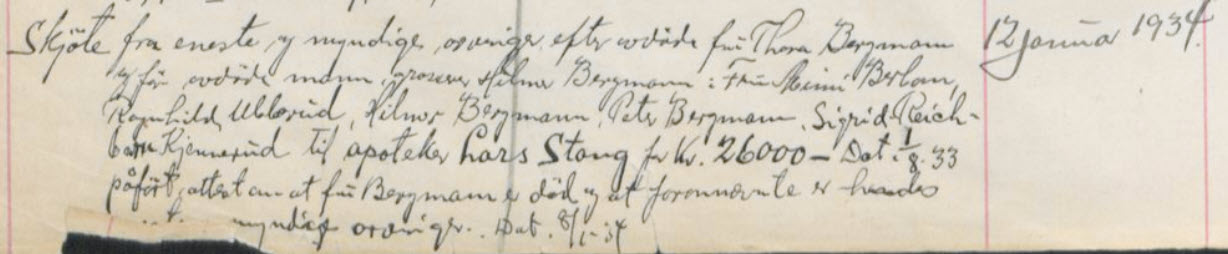 Skjöte fra eneste og myndige arvinger efter avdöde frü Thora Bergmann 12 janüar 1934.
og för avdöde mann, grosserer Hilmar Bergmann: Frü Mimi
Ragnhild Ullerüd, Hilmar Bergmann, Peter Bergmann, Sigrid Reich-
born Kjennerüd til apoteker Lars Stang for Kr. 26000 - Dat. 1/8. 33
påfört attest om at frü Bergmann er död og at forannevnte er hendes
myndige arvinger. Dat. 8/1-34